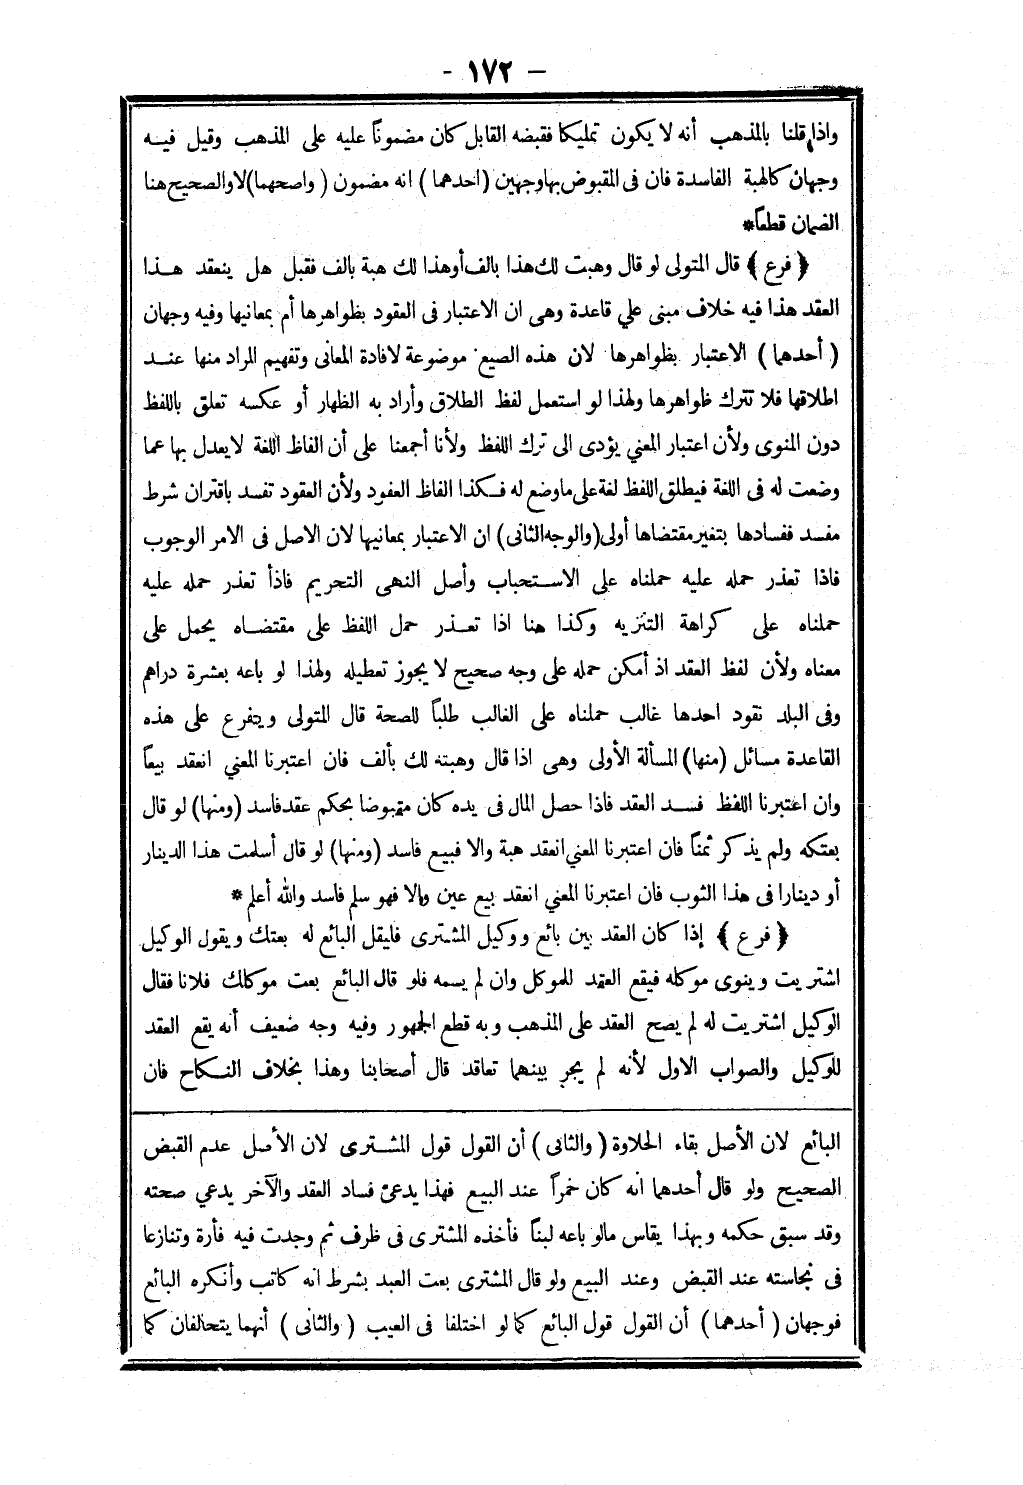 – ١٧٢ -
واذا قلنا بالمذهب أنه لا يكون تمليكا فقبضه القابل كان مضموناً عليه على المذهب وقيل فيه
وجهان كالهبة الفاسدة فان فى المقبوض بها وجهين (احدهما) انه مضمون (واصحهما) لا والصحيح هنا
الضمان قطعاً*
﴿ فرع ﴾ قال المتولى لو قال وهبت لك هذا بالف أو هذا لك هبة بالف فقبل هل ينعقد هذا
العقد هذا فيه خلاف مبنى علي قاعدة وهى ان الاعتبار فى العقود بظواهرها أم بمعانيها وفيه وجهان
( أحدهما ) الاعتبار بظواهرها لان هذه الصيغ موضوعة لافادة المعانى وتفهيم المراد منها عند
اطلاقها فلا تترك ظواهرها ولهذا لو استعمل لفظ الطلاق وأراد به الظهار أو عكسه تعلق باللفظ
دون المنوى ولأن اعتبار المعني يؤدى الى ترك اللفظ ولأنا أجمعنا على أن الفاظ اللغة لا يعدل بها عما
وضعت له فى اللغة فيطلق اللفظ لغة على ما وضع له فكذا الفاظ العقود ولأن العقود تفسد باقتران شرط
مفسد ففسادها بتغير مقتضاها أولى (والوجه الثانى) ان الاعتبار بمعانيها لان الاصل فى الامر الوجوب
فاذا تعذر حمله عليه حملناه على الاستحباب وأصل النهى التحريم فاذا تعذر حمله عليه
حملناه على كراهة التنزيه وكذا هنا اذا تعذر حمل اللفظ على مقتضاه يحمل على
معناه ولأن لفظ العقد اذ أمكن حمله على وجه صحيح لا يجوز تعطيله ولهذا لو باعه بعشرة دراهم
وفى البلد نقود احدها غالب حملناه على الغالب طلباً للصحة قال المتولى ويتفرع على هذه
القاعدة مسائل (منها) المسألة الأولى وهى اذا قال وهبته لك بألف فان اعتبرنا المعني انعقد بيعاً
وان اعتبرنا اللفظ فسد العقد فاذا حصل المال فى يده كان مقبوضا بحكم عقد فاسد (ومنها) لو قال
بعتكه ولم يذكر ثمناً فان اعتبرنا المعني انعقد هبة والا فبيع فاسد (ومنها) لو قال أسلمت هذا الدينار
أو دينارا فى هذا الثوب فان اعتبرنا المعني انعقد بيع عين والا فهو سلم فاسد والله أعلم *
﴿ فرع ﴾ إذا كان العقد بين بائع ووكيل المشترى فليقل البائع له بعتك ويقول الوكيل
اشتريت وينوى موكله فيقع العقد للموكل وان لم يسمه فلو قال البائع بعت موكلك فلانا فقال
الوكيل اشتريت له لم يصح العقد على المذهب وبه قطع الجمهور وفيه وجه ضعيف أنه يقع العقد
للوكيل والصواب الاول لأنه لم يجر بينهما تعاقد قال أصحابنا وهذا بخلاف النكاح فان
البائع لان الأصل بقاء الحلاوة (والثانى) أن القول قول المشترى لان الأصل عدم القبض
الصحيح ولو قال أحدهما انه كان خمراً عند البيع فهذا يدعى فساد العقد والآخر يدعي صحته
وقد سبق حكمه وبهذا يقاس ما لو باعه لبناً فأخذه المشترى فى ظرف ثم وجدت فيه فأرة وتنازعا
فى نجاسته عند القبض وعند البيع ولو قال المشترى بعت العبد بشرط انه كاتب وأنكره البائع
فوجهان ( أحدهما ) أن القول قول البائع كما لو اختلفا فى العيب ( والثانى ) أنهما يتحالفان كما